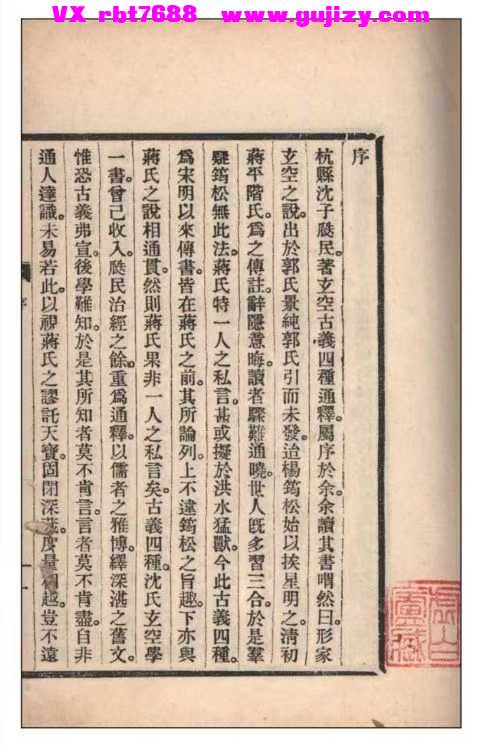 VX rbt7688 www.gujizy.com
序
杭縣沈子瓞民。著玄空古義四種通釋。屬序於余。余讀其書。喟然曰。形家
玄空之說。出於郭氏景純。郭氏引而未發。迨楊筠松始以挨星明之。清初
蔣平階氏。爲之傳註。辭隱意晦。讀者驟難通曉。世人旣多習三合。於是羣
疑筠松無此法。蔣氏特一人之私言。甚或擬於洪水猛獸。今此古義四種。
爲宋明以來傳書。皆在蔣氏之前。其所論列。上不違筠松之旨趣。下亦與
蔣氏之說相通貫。然則蔣氏果非一人之私言矣。古義四種。沈氏玄空學
一書。曾已收入。瓞民治經之餘。重爲通釋。以儒者之雅博。繹深湛之舊文。
惟恐古義弗宣。後學難知。於是其所知者莫不肯言。言者莫不肯盡。自非
通人達識。未易若此。以視蔣氏之謬託天寶。固閉深藏。度量相越。豈不遠
序
一